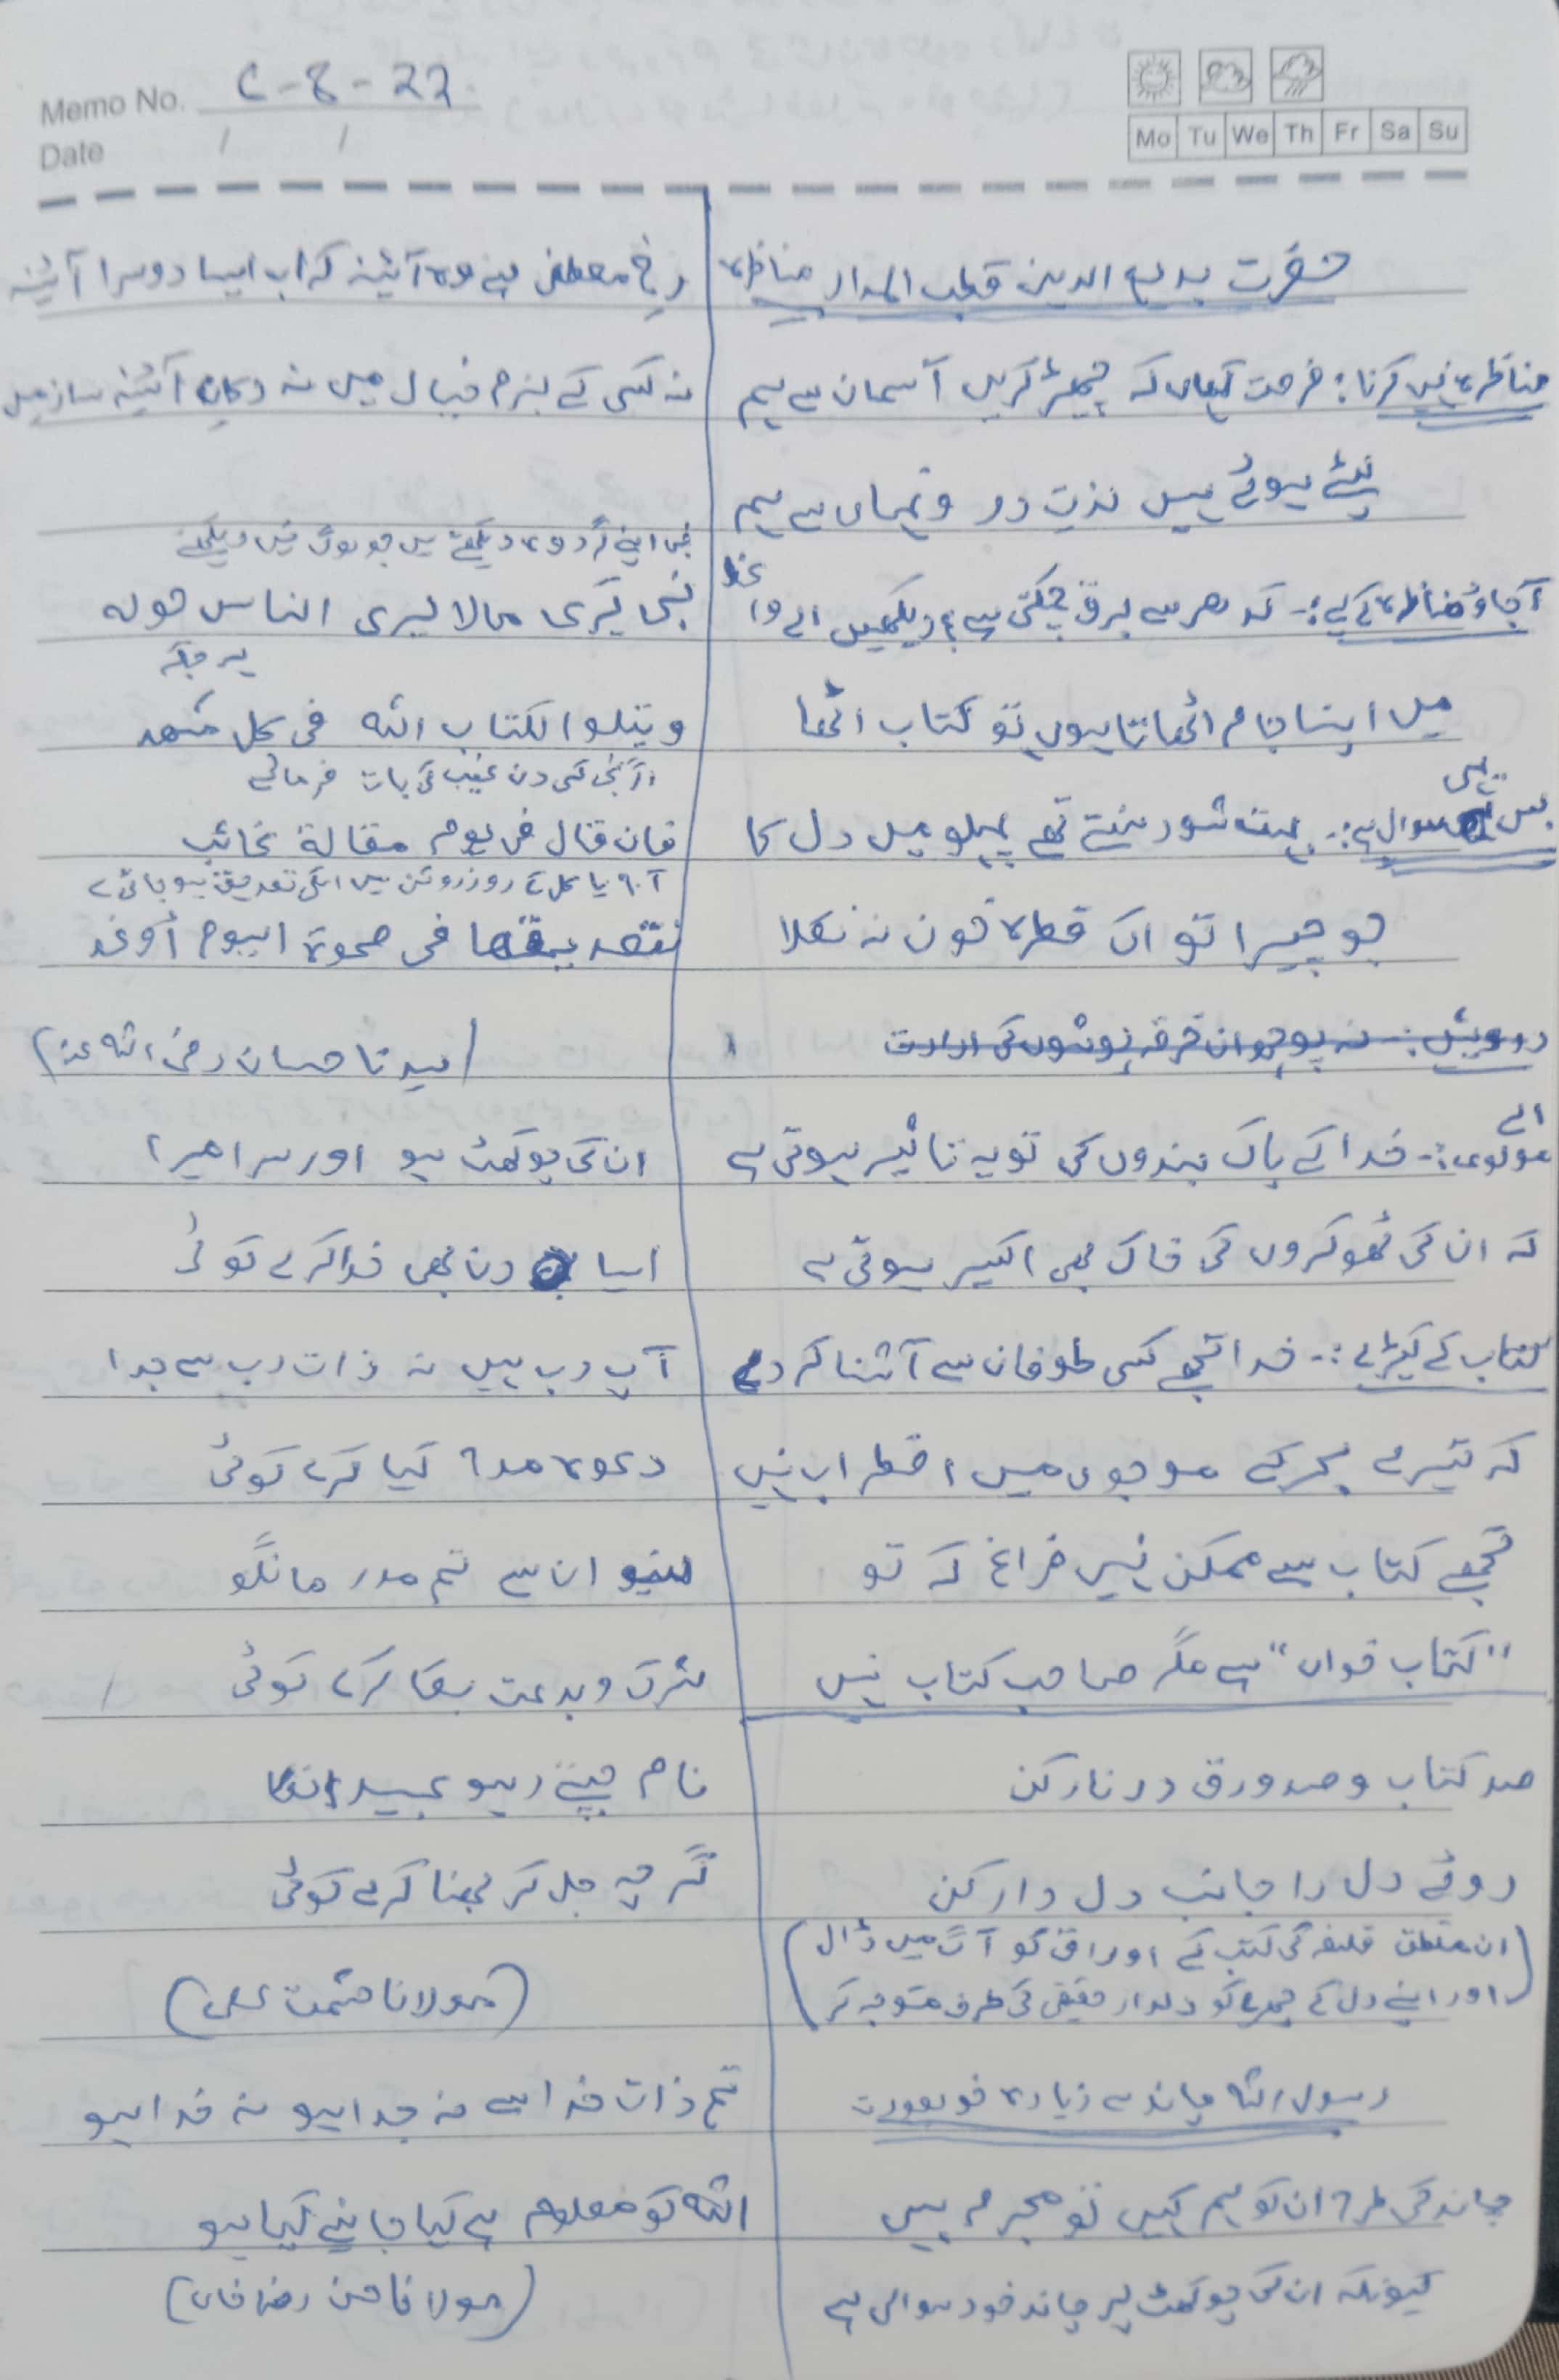 Memo No. C-8-22
Date / /
Mo Tu We Th Fr Sa Su
حضرت بدیع الدین قطب المدار مناظرہ
مناظرہ نہیں کرنا :۔ فرصت کہاں کہ چھیڑ کریں آسمان سے ہم
لپٹے ہوئے ہیں لذت درد نہاں سے ہم
آجاؤ مناظرہ کے لیے :۔ کدھر سے برق چمکتی ہے دیکھیں اے واعظ
میں اپنا جام اٹھاتا ہوں تو کتاب اٹھا
بس یہی سوال ہے :۔ بہت شور سنتے تھے پہلو میں دل کا
جو چیرا تو اک قطرہ خون نہ نکلا
درویش :۔ نہ پوچھ ان خرقہ پوشوں کی ارادت
اے مولوی :۔ خدا کے پاک بندوں کی تو یہ تاثیر ہوتی ہے
کہ ان کی ٹھوکروں کی خاک بھی اکسیر ہوتی ہے
کتاب کے کیڑے :۔ خدا تجھے کسی طوفان سے آشنا کر دے
کہ تیرے بحر کے موجوں میں اضطراب نہیں
تجھے کتاب سے ممکن نہیں فراغ کہ تو
"کتاب خواں" ہے مگر صاحب کتاب نہیں
صد کتاب و صد ورق در نار کن
روئے دل را جانب دل دار کن
(ان منطق فلسفہ کی کتب کے اوراق کو آگ میں ڈال
اور اپنے دل کے چہرے کو دلدار حقیقی کی طرف متوجہ کر)
رسول اللہ چاند سے زیادہ خوبصورت
چاند کی طرح ان کو ہم کہیں تو مجرم ہیں
کیونکہ ان کی چوکھٹ پر چاند خود سوالی ہے
رخ مصطفی ہے وہ آئینہ کہ اب ایسا دوسرا آئینہ
نہ کسی کے بزم خیال میں نہ دکان آئینہ ساز میں
نبی اپنے گردوہ دیکھتے ہیں جو لوگ نہیں دیکھتے
نبی یری مالا یری الناس حولہ
ہر جگہ
ویتلوا لکتاب اللہ فی کل مشھد
اگر نبی کسی دن غیب کی بات فرمائے
فان قال فی یوم مقالة غائب
آج یا کل کے روز روشن میں اسکی تصدیق ہو جائے گی
فتصدیقھا فی ضحوة الیوم أو غد
(سیدنا حسان رضی اللہ عنہ)
ان کی چوکھٹ ہو اور سر امیرا
ایسا دن بھی خدا کرے کوئی
آپ رب ہیں نہ ذات رب سے جدا
دعوہ مدح کیا کرے کوئی
سنیو ان سے تم مدد مانگو
شرک و بدعت بکا کرے کوئی
نام جپتے رہو عبید انکا
گرچہ جل کر بھنا کرے کوئی
(مولانا حشمت علی)
تم ذات خدا سے نہ جدا ہو نہ خدا ہو
اللہ کو معلوم ہے کیا جانیے کیا ہو
(مولانا حسن رضا خاں)